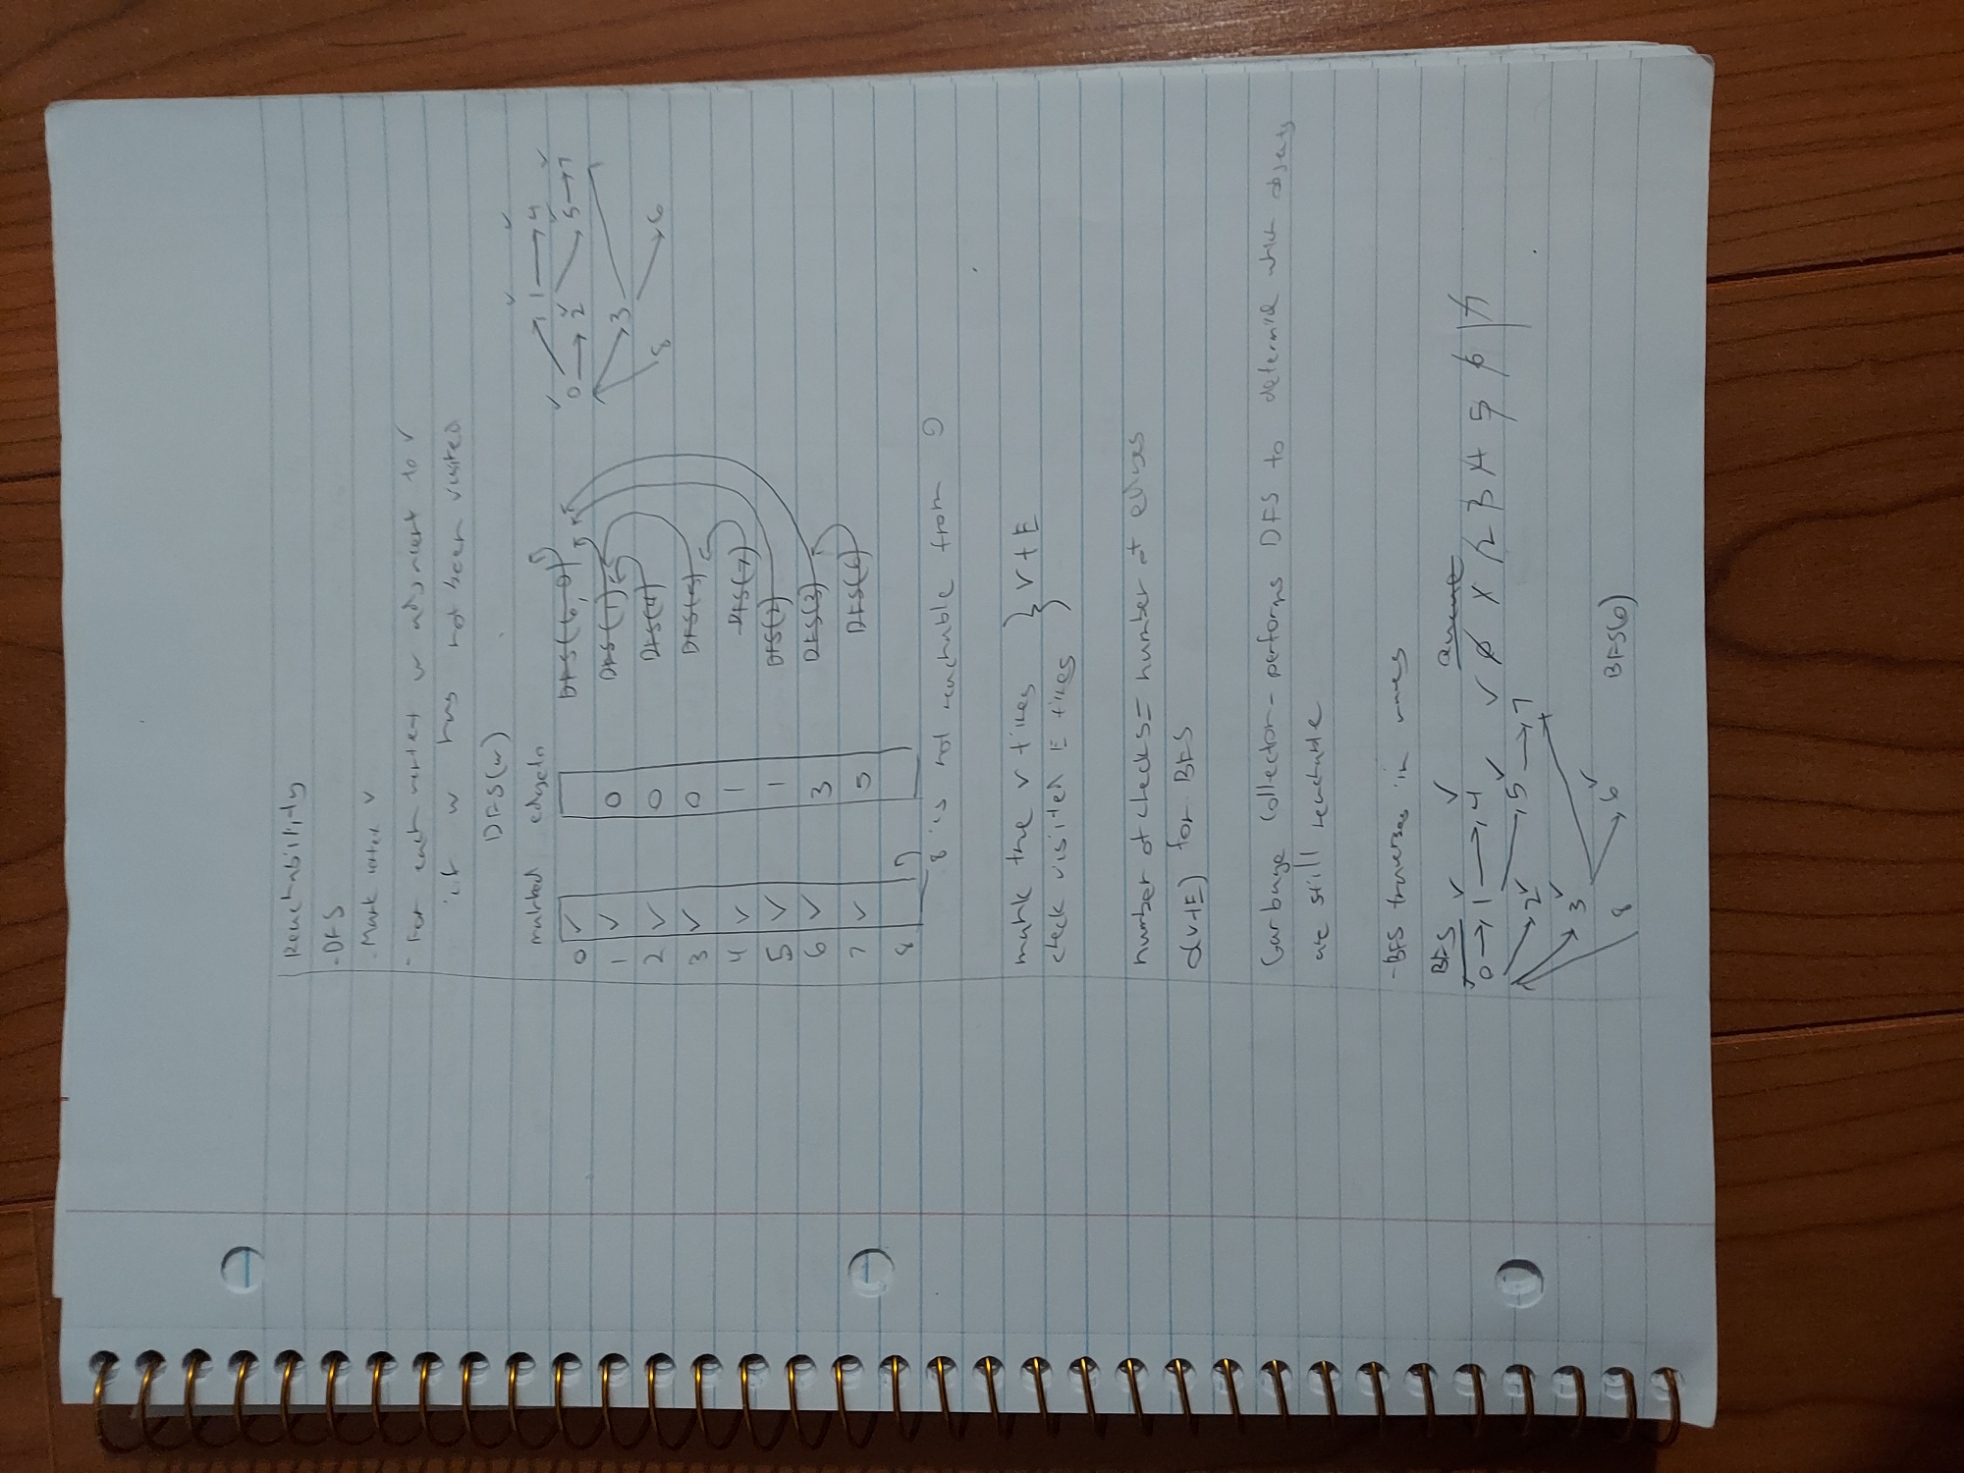 Reachability
-DFS
-Mark vertex v
-For each vertex w adjacent to v
if w has not been visited
DFS(w)
marked edgeTo
0 ✓
1 ✓ 0
2 ✓ 0
3 ✓ 0
4 ✓ 1
5 ✓ 1
6 ✓ 3
7 ✓ 5
8
DFS(G, 0)
DFS(1)
DFS(4)
DFS(5)
DFS(7)
DFS(2)
DFS(3)
DFS(6)
✓ ✓
1 → 4
✓ ✓ ✓ ✓
0 → 2 5 → 7
3
8 6
8 is not reachable from 0
mark the v times } V + E
check visited E times
number of checks = number of edges
O(V+E) for BFS
Garbage Collector - performs DFS to determine which objects
are still reachable
-BFS traverses in
BFS ✓ ✓ Queue
✓ 0 → 1 → 4 ✓ 0 1 2 3 4 5 6 7
2 ✓ 5 ✓ → 7
3 ✓
8 6 ✓ BFS(G)